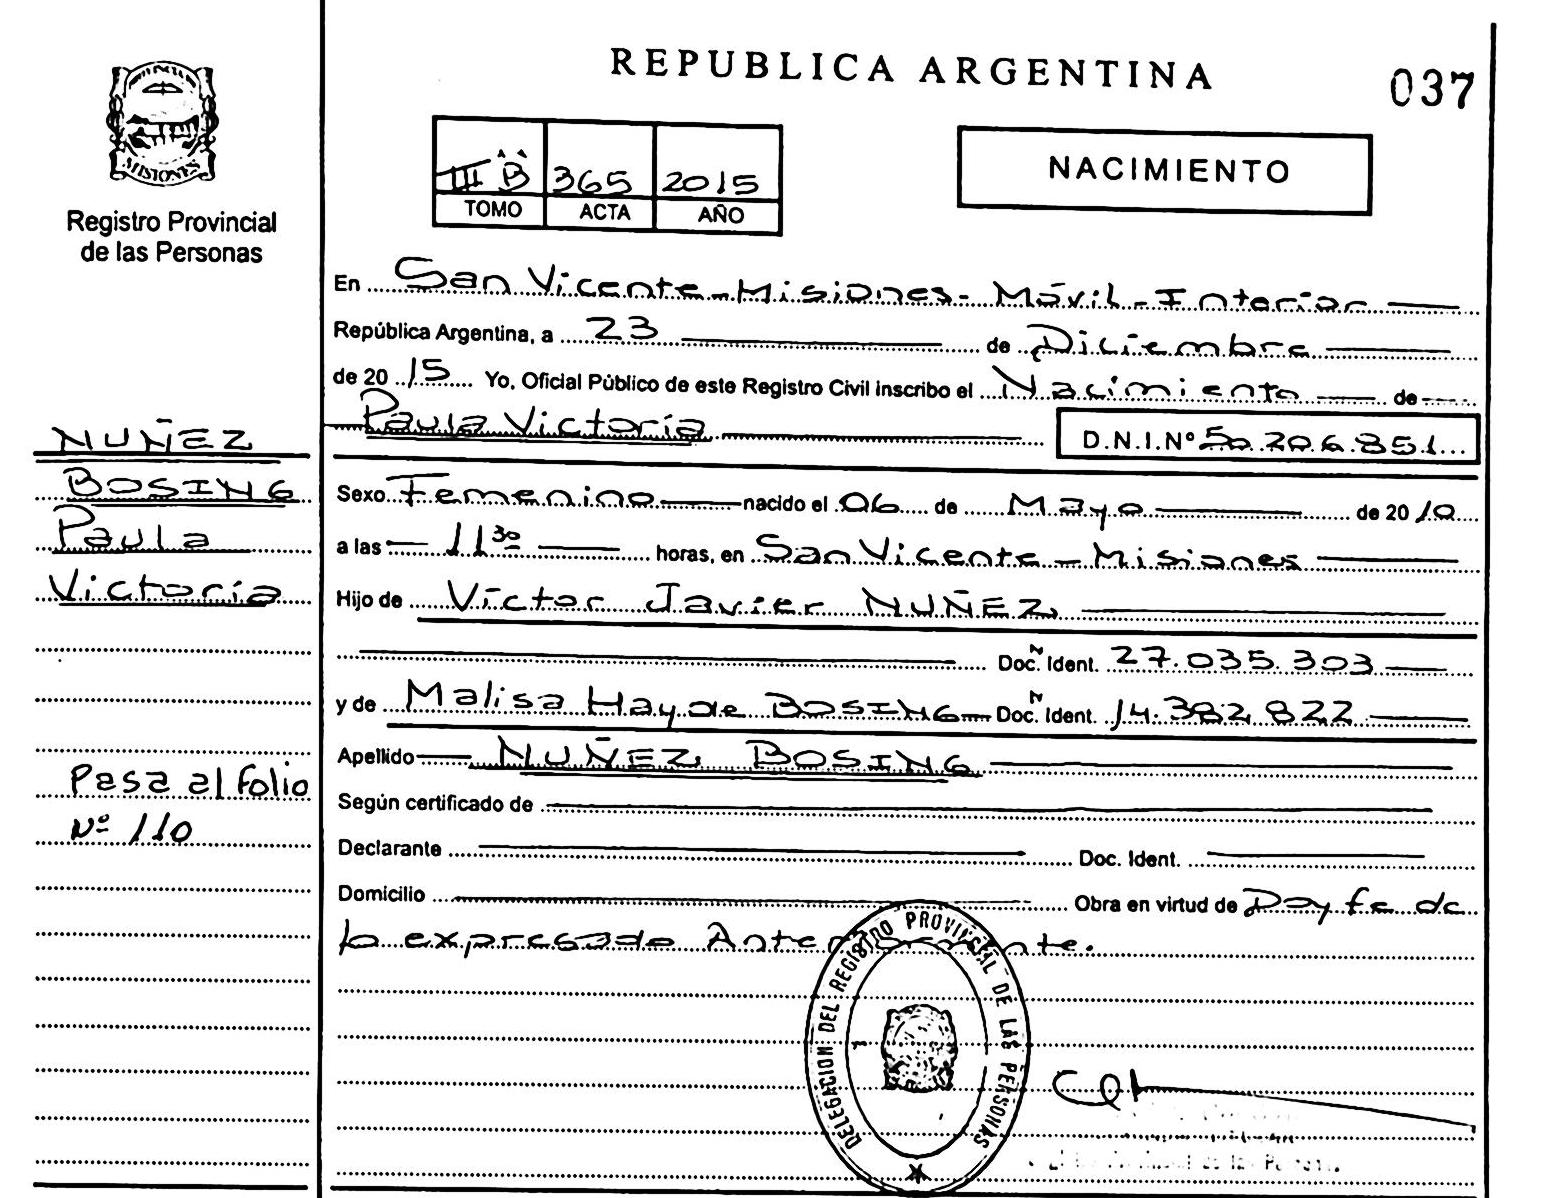 REPUBLICA ARGENTINA
037
MISIONES
Registro Provincial
de las Personas
III "B" 365 2015
TOMO ACTA AÑO
NACIMIENTO
En San Vicente - Misiones - Móvil - Interior
República Argentina, a 23 de Diciembre
de 20 15 Yo, Oficial Público de este Registro Civil inscribo el Nacimiento de
Paula Victoria D.N.I.Nº 50.206.851
Sexo Femenino nacido el 06 de Mayo de 20 10
a las 11 30 horas, en San Vicente - Misiones
Hijo de Víctor Javier NUÑEZ
Doc. Ident. 27.035.303
y de Malisa Hayde BOSING Doc. Ident. 14.382.822
Apellido NUÑEZ BOSING
Según certificado de
Declarante Doc. Ident.
Domicilio Obra en virtud de Doy fe de
lo expresado Anteriormente.
NUÑEZ
BOSING
Paula
Victoria
Pasa al folio
Nº 110
DELEGACION DEL REGISTRO PROVINCIAL DE LAS PERSONAS